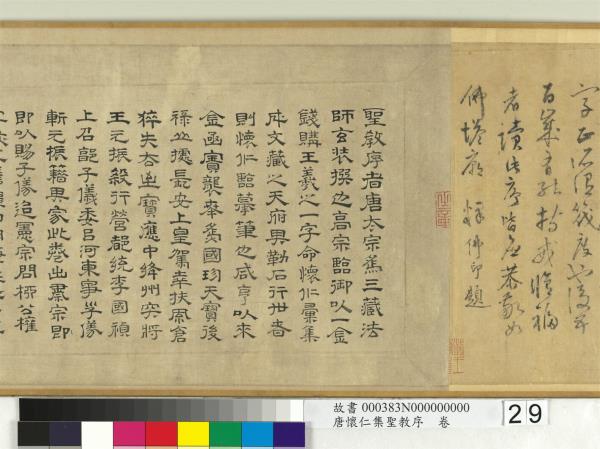 字正
者讀此序皆應恭敬如
佛塔廟 釋佛印題
聖教序者唐太宗為三藏法
師玄裝撰也高宗臨御以一金
錢購王羲之一字命懷仁彙集
成文藏之天府與勒石行世者
則懷仁臨摹筆也咸亨以來
金函寶襲奉為國珍天寶後
祿山據長安上皇駕幸扶風倉
猝失去此寶應中絳州突將
王元振殺行營都統李國禎
上召郭子儀委以河東事子儀
斬元振籍其家此卷出肅宗即
即以賜子儀迨憲宗問柳公權
故書 000383N000000000
唐懷仁集聖教序 卷
29